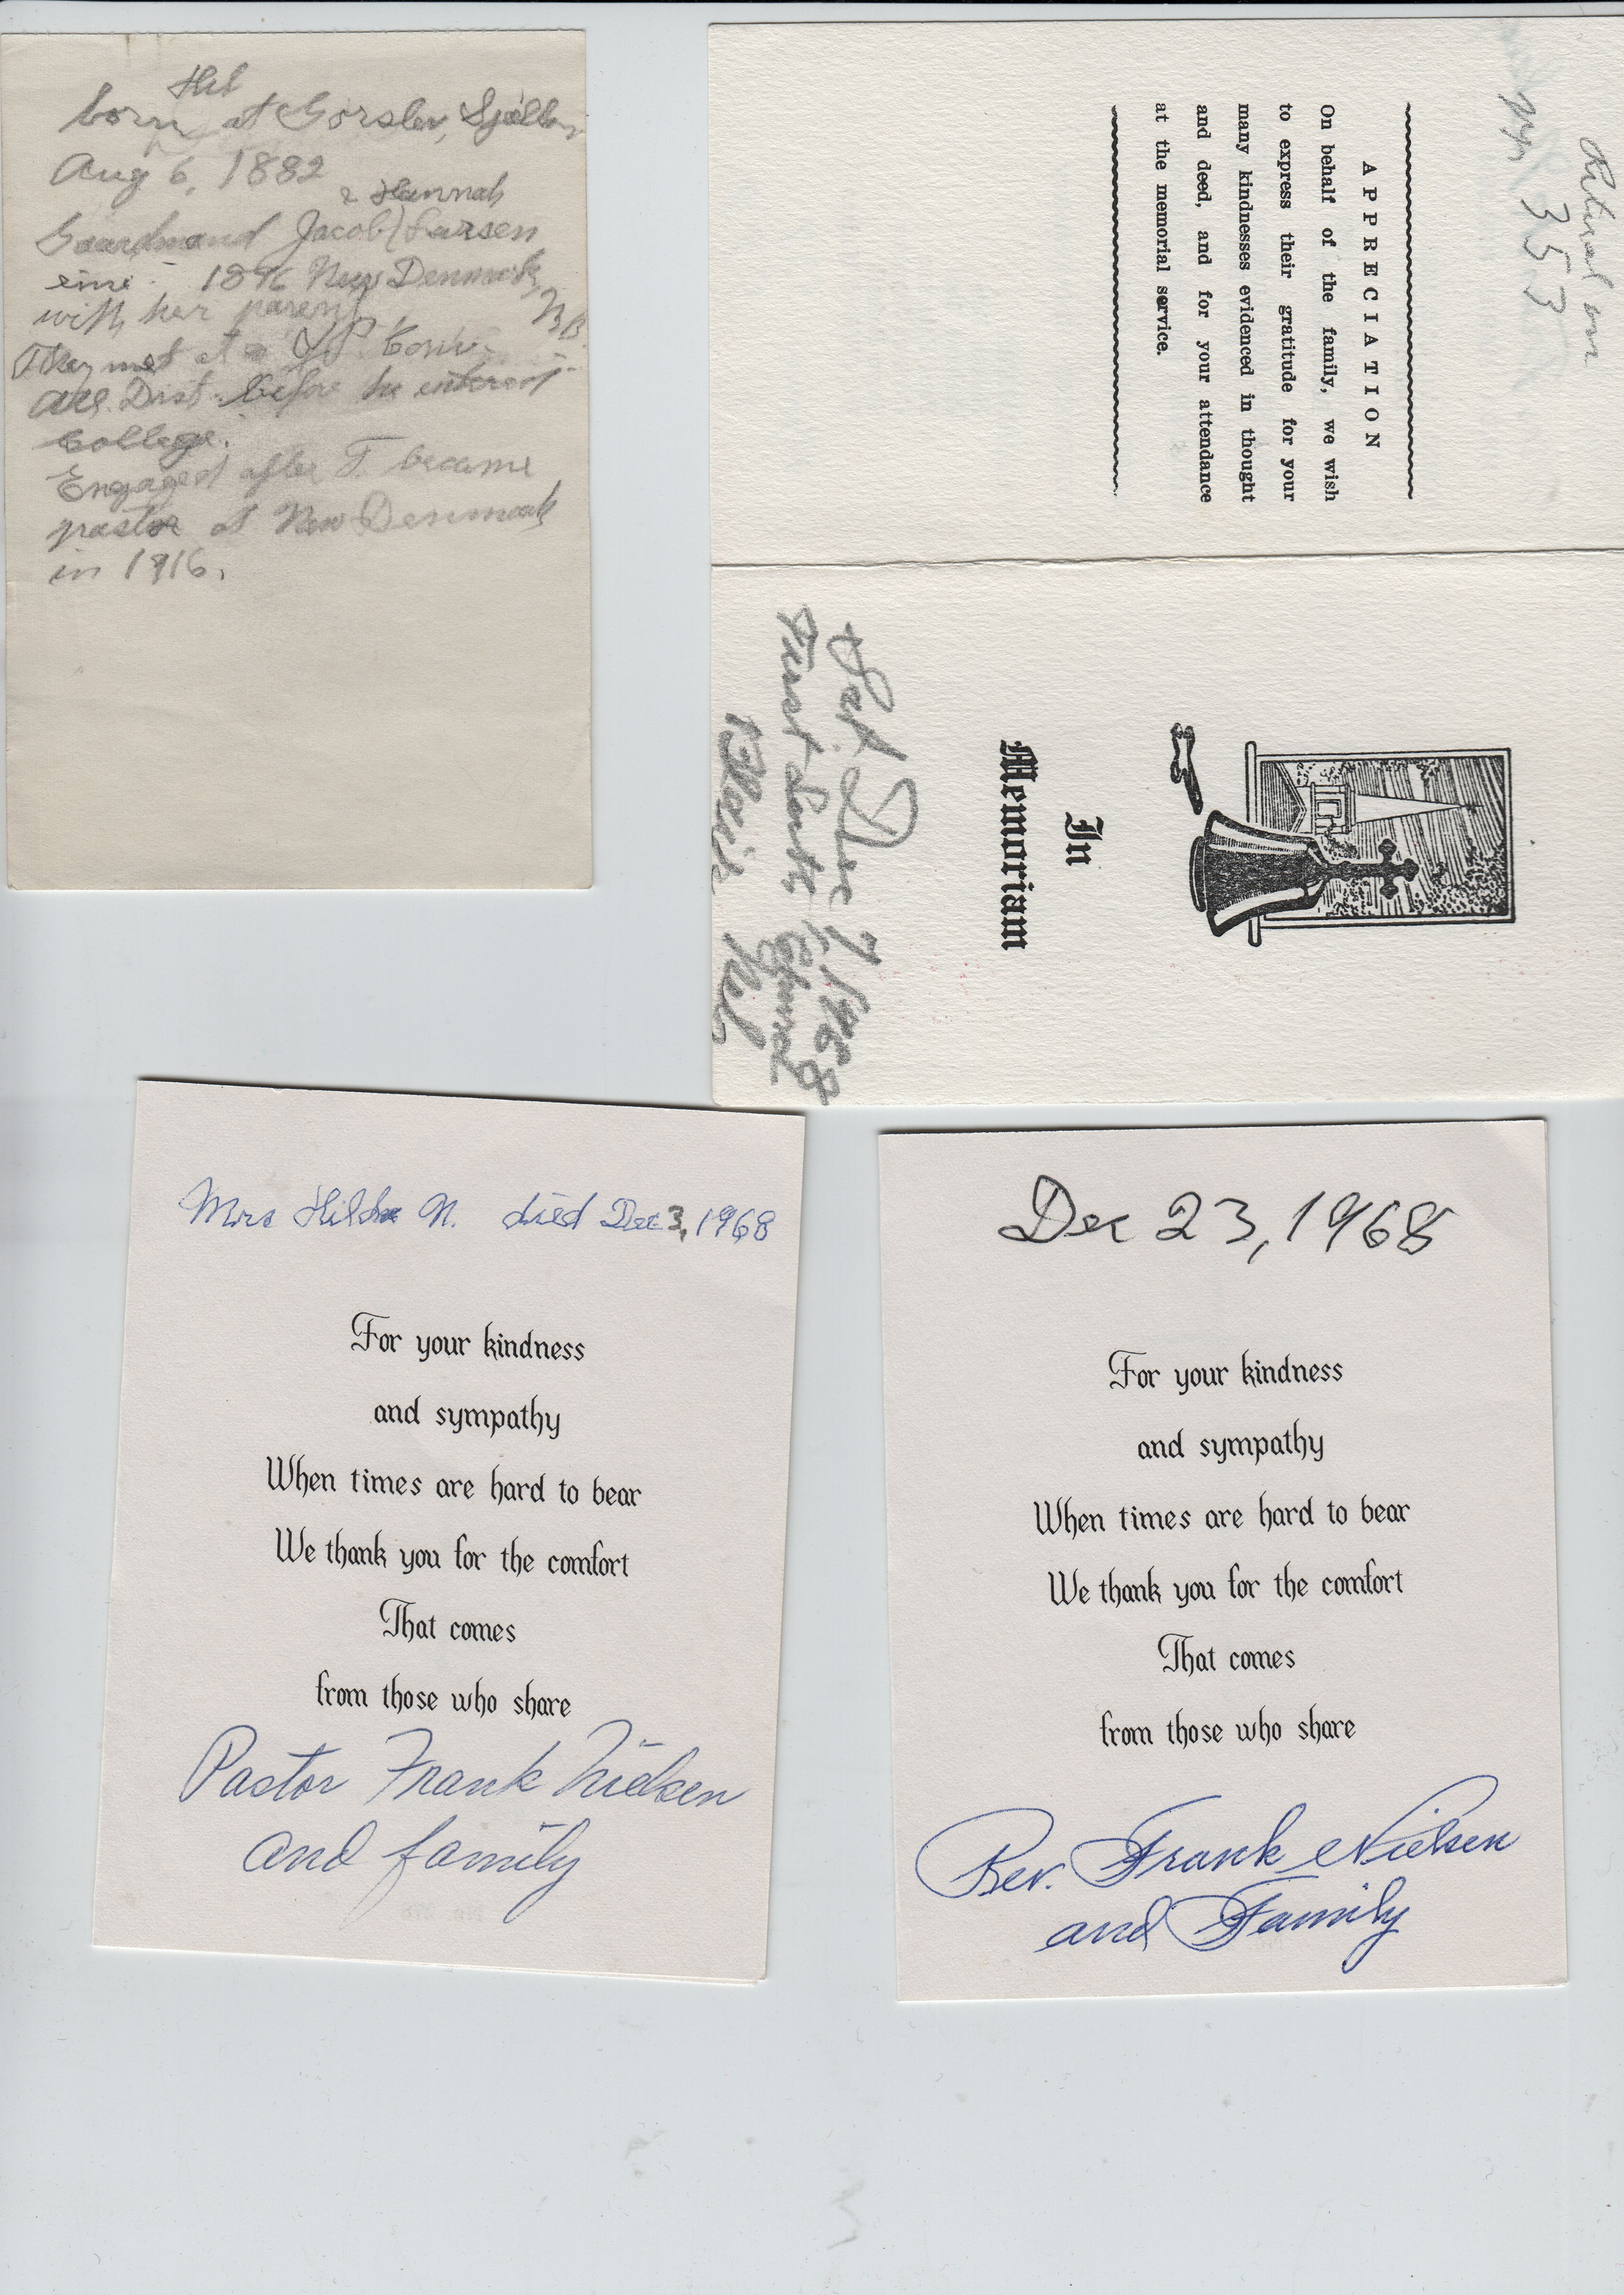 Hil
born at Gørslev, Sjælla
Aug 6, 1882
& Hannah
Gaardmand Jacob Larsen
emi - 1896 New Denmark,
N.B.
with her parents
They met at a Y.P. Conv.
Atl. Dist. before he entered
College.
Engaged after F. became
pastor at New Denmark
in 1916.
353
APPRECIATION
On behalf of the family, we wish
to express their gratitude for your
many kindnesses evidenced in thought
and deed, and for your attendance
at the memorial service.
In
Memoriam
Sat Dec 7 1968
First Luth Church
Blair Neb
Mrs Hilda N. died Dec 3, 1968
For your kindness
and sympathy
When times are hard to bear
We thank you for the comfort
That comes
from those who share
Pastor Frank Nielsen
and family
Dec 23, 1968
For your kindness
and sympathy
When times are hard to bear
We thank you for the comfort
That comes
from those who share
Rev. Frank Nielsen
and Family